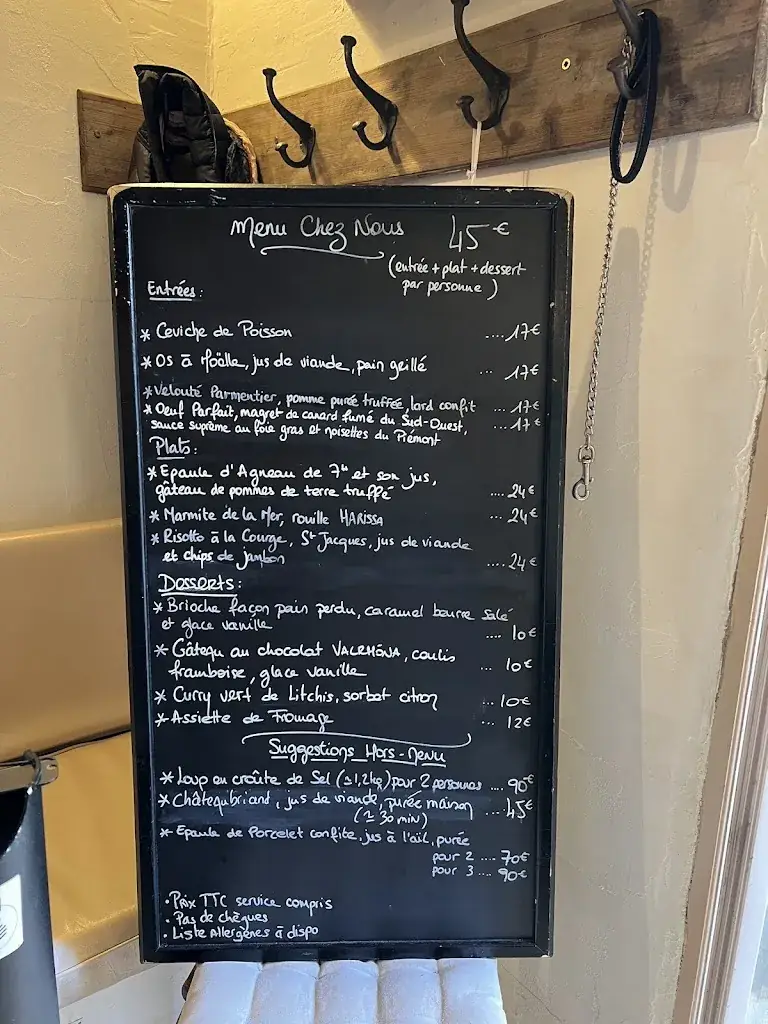 Menu Chez Nous 45€
(entrée + plat + dessert
par personne)
Entrées:
* Ceviche de Poisson ....17€
* Os à Moëlle, jus de viande, pain grillé ... 17€
* Velouté Parmentier, pomme purée truffée, lard confit ... 17€
* Oeuf Parfait, magret de canard fumé du Sud-Ouest, ....17€
sauce suprême au foie gras et noisettes du Piémont
Plats:
* Epaule d'Agneau de 7h et son jus,
gâteau de pommes de terre truffé .... 24€
* Marmite de la Mer, rouille HARISSA ... 24€
* Risotto à la Courge, St Jacques, jus de viande
et chips de jambon .... 24€
Desserts:
* Brioche façon pain perdu, caramel beurre salé
et glace vanille .... 10€
* Gâteau au chocolat VALRHONA, coulis
framboise, glace vanille ... 10€
* Curry vert de Litchis, sorbet citron ... 10€
* Assiette de Fromage ... 12€
Suggestions Hors-Menu
* Loup en croûte de Sel (±1,2kg) pour 2 personnes .... 90€
* Châteaubriand, jus de viande, purée maison .... 45€
(± 30 min)
* Epaule de Porcelet confite, jus à l'ail, purée
pour 2 .... 70€
pour 3 .... 90€
• Prix TTC service compris
• Pas de chèques
• Liste Allergènes à dispo